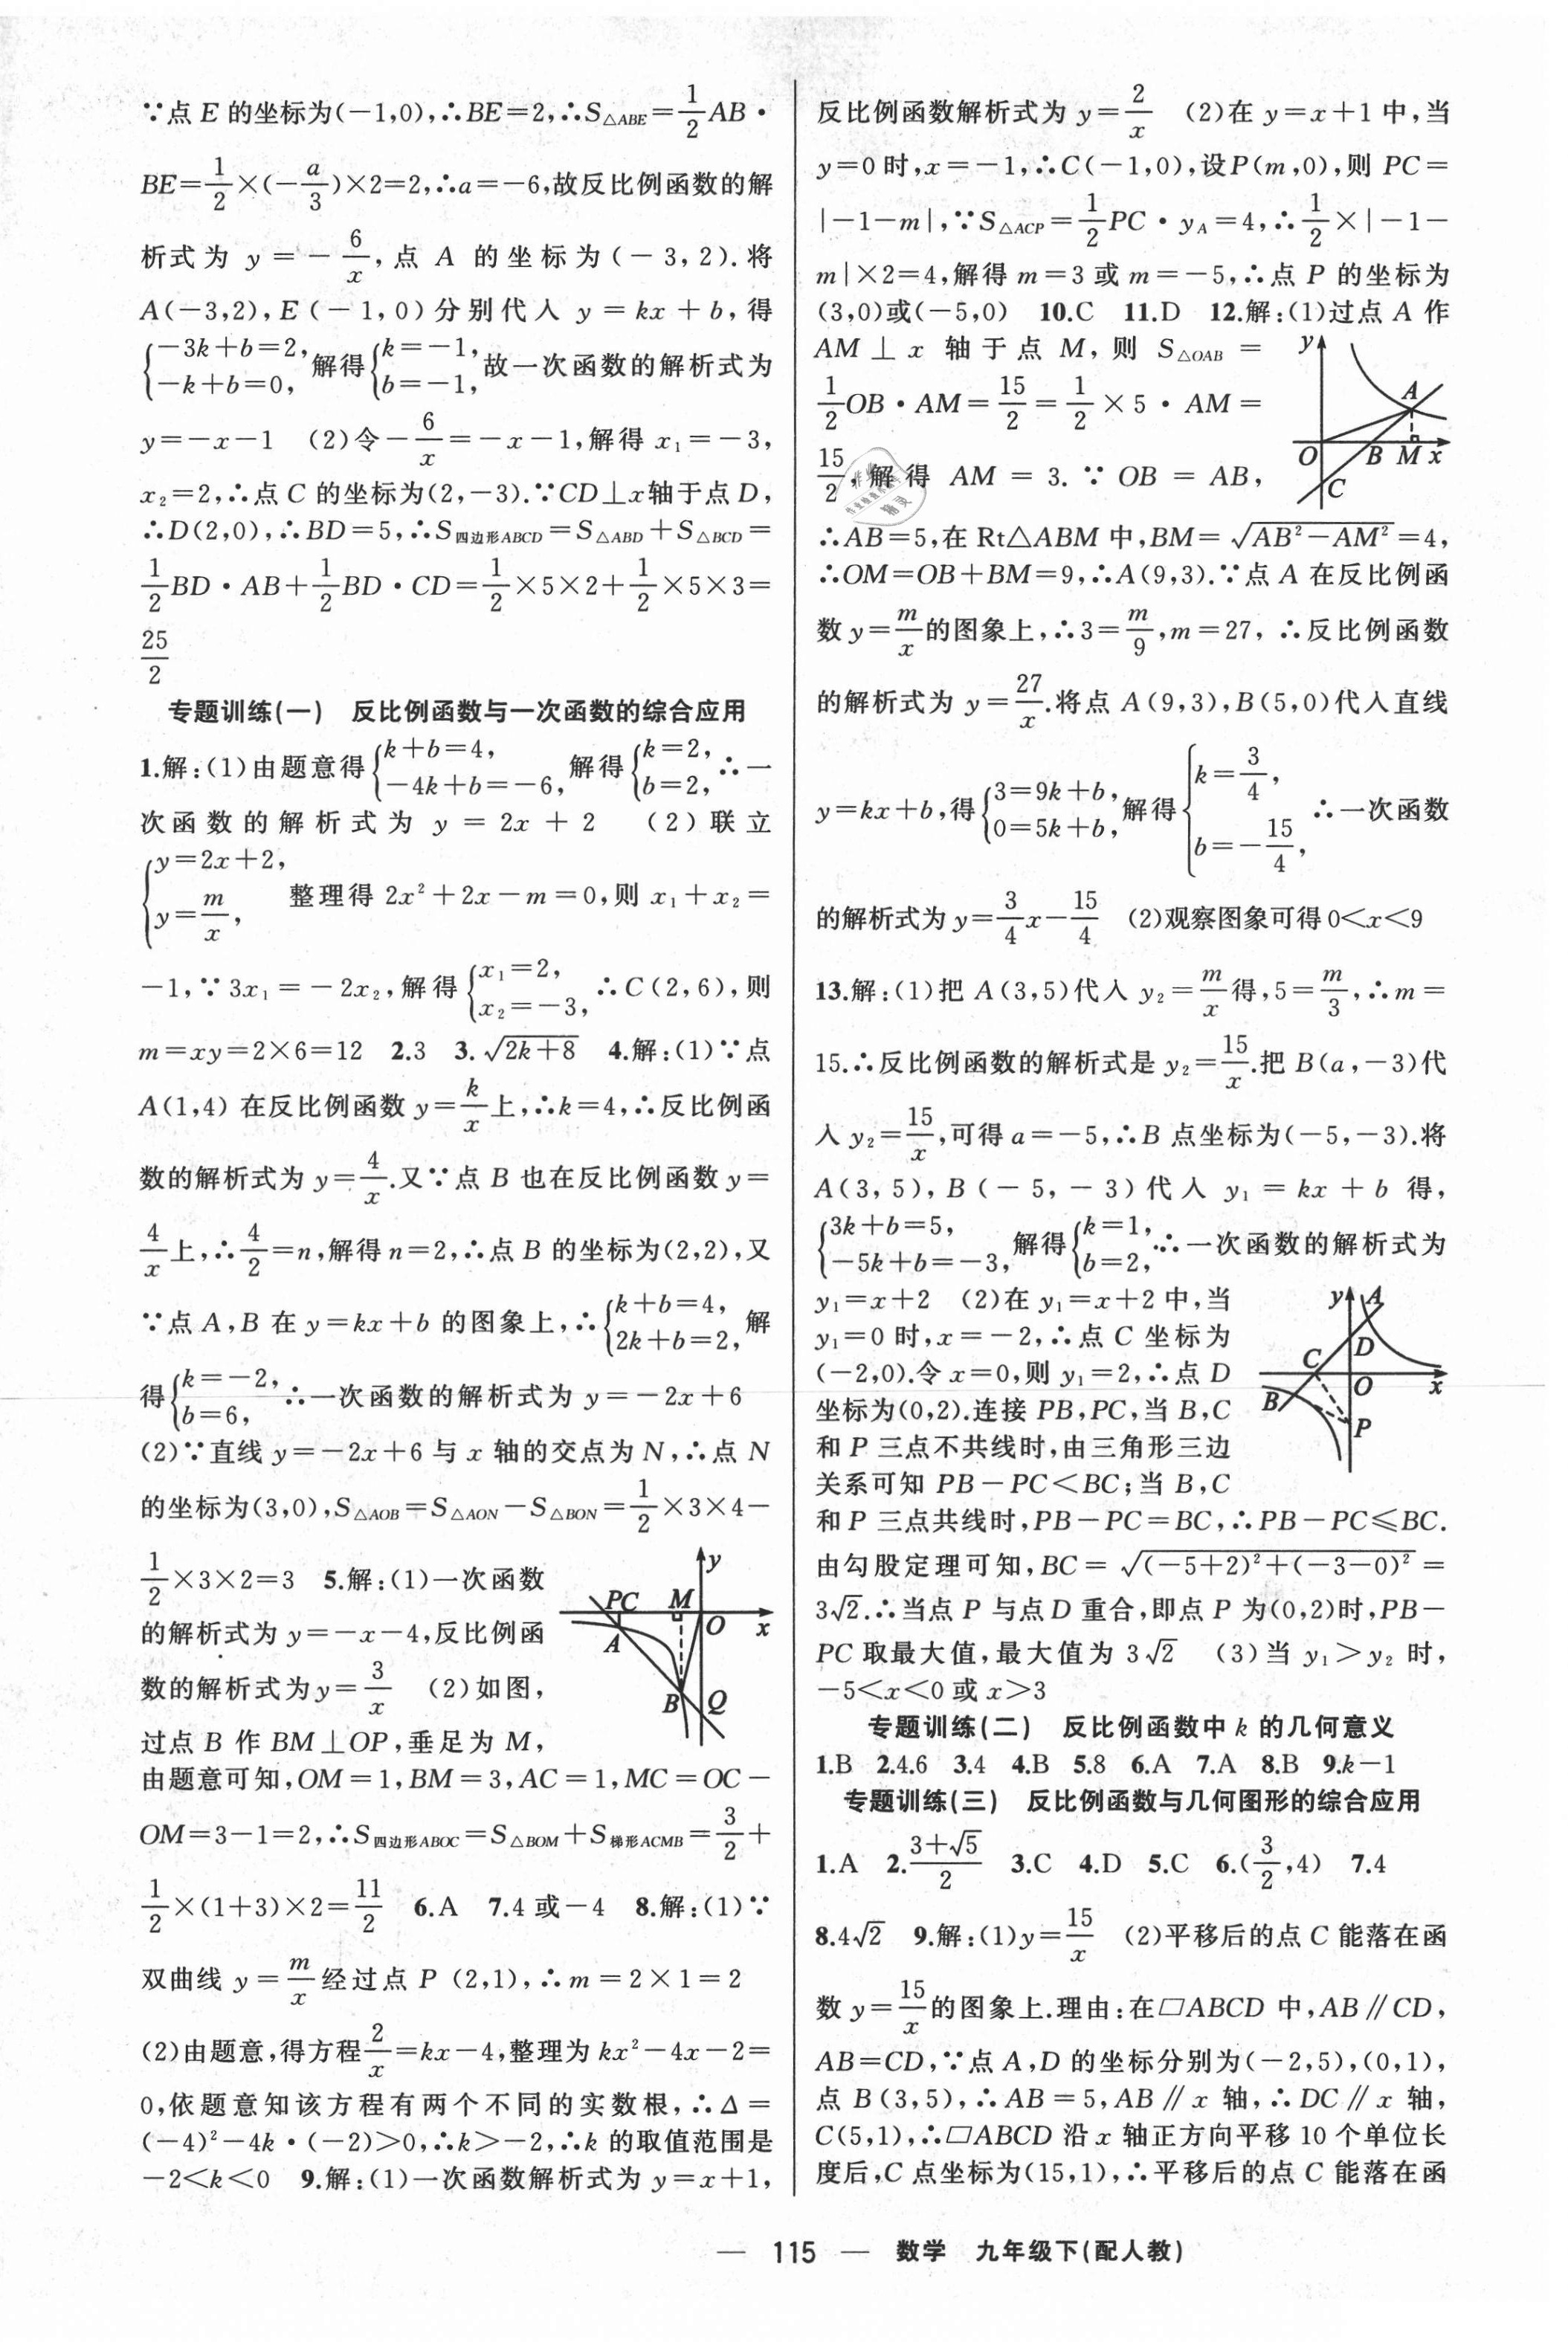 ∵点 E 的坐标为(−1,0),∴BE=2,∴S△ABE=1/2AB·
BE=1/2×(−a/3)×2=2,∴a=−6,故反比例函数的解
析式为 y=−6/x,点 A 的坐标为(−3,2).将
A(−3,2),E(−1,0)分别代入 y=kx+b,得
{−3k+b=2, −k+b=0, 解得{k=−1, b=−1, 故一次函数的解析式为
y=−x−1 (2)令−6/x=−x−1,解得 x₁=−3,
x₂=2,∴点 C 的坐标为(2,−3).∵CD⊥x轴于点 D,
∴D(2,0),∴BD=5,∴S四边形ABCD=S△ABD+S△BCD=
1/2BD·AB+1/2BD·CD=1/2×5×2+1/2×5×3=
25/2
专题训练(一) 反比例函数与一次函数的综合应用
1.解:(1)由题意得{k+b=4, −4k+b=−6, 解得{k=2, b=2, ∴一
次函数的解析式为 y=2x+2 (2)联立
{y=2x+2, y=m/x, 整理得 2x²+2x−m=0,则 x₁+x₂=
−1,∵3x₁=−2x₂,解得{x₁=2, x₂=−3, ∴C(2,6),则
m=xy=2×6=12 2.3 3.√(2k+8) 4.解:(1)∵点
A(1,4)在反比例函数 y=k/x上,∴k=4,∴反比例函
数的解析式为 y=4/x.又∵点 B 也在反比例函数 y=
4/x上,∴4/2=n,解得 n=2,∴点 B 的坐标为(2,2),又
∵点 A,B 在 y=kx+b 的图象上,∴{k+b=4, 2k+b=2, 解
得{k=−2, b=6, ∴一次函数的解析式为 y=−2x+6
(2)∵直线 y=−2x+6 与 x 轴的交点为 N,∴点 N
的坐标为(3,0),S△AOB=S△AON−S△BON=1/2×3×4−
1/2×3×2=3 5.解:(1)一次函数
的解析式为 y=−x−4,反比例函
数的解析式为y=3/x (2)如图,
过点 B 作 BM⊥OP,垂足为 M,
y
PC M
O x
A
B Q
由题意可知,OM=1,BM=3,AC=1,MC=OC−
OM=3−1=2,∴S四边形ABOC=S△BOM+S梯形ACMB=3/2+
1/2×(1+3)×2=11/2 6.A 7.4 或−4 8.解:(1)∵
双曲线 y=m/x经过点 P(2,1),∴m=2×1=2
(2)由题意,得方程2/x=kx−4,整理为 kx²−4x−2=
0,依题意知该方程有两个不同的实数根,∴Δ=
(−4)²−4k·(−2)>0,∴k>−2,∴k 的取值范围是
−2<k<0 9.解:(1)一次函数解析式为 y=x+1,
反比例函数解析式为 y=2/x (2)在 y=x+1 中,当
y=0 时,x=−1,∴C(−1,0),设P(m,0),则 PC=
|−1−m|,∵S△ACP=1/2PC·yA=4,∴1/2×|−1−
m|×2=4,解得 m=3 或 m=−5,∴点 P 的坐标为
(3,0)或(−5,0) 10.C 11.D 12.解:(1)过点 A 作
AM⊥x 轴于点 M,则 S△OAB=
1/2OB·AM=15/2=1/2×5·AM=
15/2,解得 AM=3.∵OB=AB,
y
A
O B M x
C
∴AB=5,在 Rt△ABM 中,BM=√(AB²−AM²)=4,
∴OM=OB+BM=9,∴A(9,3).∵点 A 在反比例函
数 y=m/x的图象上,∴3=m/9,m=27,∴反比例函数
的解析式为 y=27/x.将点 A(9,3),B(5,0)代入直线
y=kx+b,得{3=9k+b, 0=5k+b, 解得{k=3/4, b=−15/4, ∴一次函数
的解析式为 y=3/4x−15/4 (2)观察图象可得 0<x<9
13.解:(1)把 A(3,5)代入 y₂=m/x得,5=m/3,∴m=
15.∴反比例函数的解析式是 y₂=15/x.把 B(a,−3)代
入 y₂=15/x,可得 a=−5,∴B 点坐标为(−5,−3).将
A(3,5),B(−5,−3)代入 y₁=kx+b 得,
{3k+b=5, −5k+b=−3, 解得{k=1, b=2, ∴一次函数的解析式为
y₁=x+2 (2)在 y₁=x+2 中,当
y₁=0 时,x=−2,∴点 C 坐标为
(−2,0).令 x=0,则 y₁=2,∴点 D
坐标为(0,2).连接 PB,PC,当 B,C
和 P 三点不共线时,由三角形三边
关系可知 PB−PC<BC;当 B,C
y A
C D
O x
B
P
和 P 三点共线时,PB−PC=BC,∴PB−PC≤BC.
由勾股定理可知,BC=√((−5+2)²+(−3−0)²)=
3√2.∴当点 P 与点 D 重合,即点 P 为(0,2)时,PB−
PC 取最大值,最大值为 3√2 (3)当 y₁>y₂ 时,
−5<x<0 或 x>3
专题训练(二) 反比例函数中 k 的几何意义
1.B 2.4.6 3.4 4.B 5.8 6.A 7.A 8.B 9.k−1
专题训练(三) 反比例函数与几何图形的综合应用
1.A 2.(3+√5)/2 3.C 4.D 5.C 6.(3/2,4) 7.4
8.4√2 9.解:(1)y=15/x (2)平移后的点 C 能落在函
数 y=15/x的图象上.理由:在▱ABCD 中,AB∥CD,
AB=CD,∵点 A,D 的坐标分别为(−2,5),(0,1),
点 B(3,5),∴AB=5,AB∥x 轴,∴DC∥x 轴,
C(5,1),∴▱ABCD 沿 x 轴正方向平移 10 个单位长
度后,C 点坐标为(15,1),∴平移后的点 C 能落在函
— 115 — 数学 九年级下(配人教)